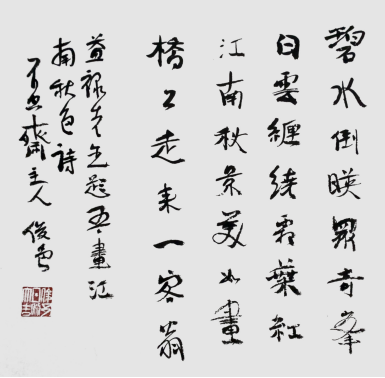 碧水倒暎眾奇峯
白雲纏繞霜葉紅
江南秋景美如畫
橋上走来一客翁
益祿先生題吾畫江
南秋色詩
百忍齋主人 俊多